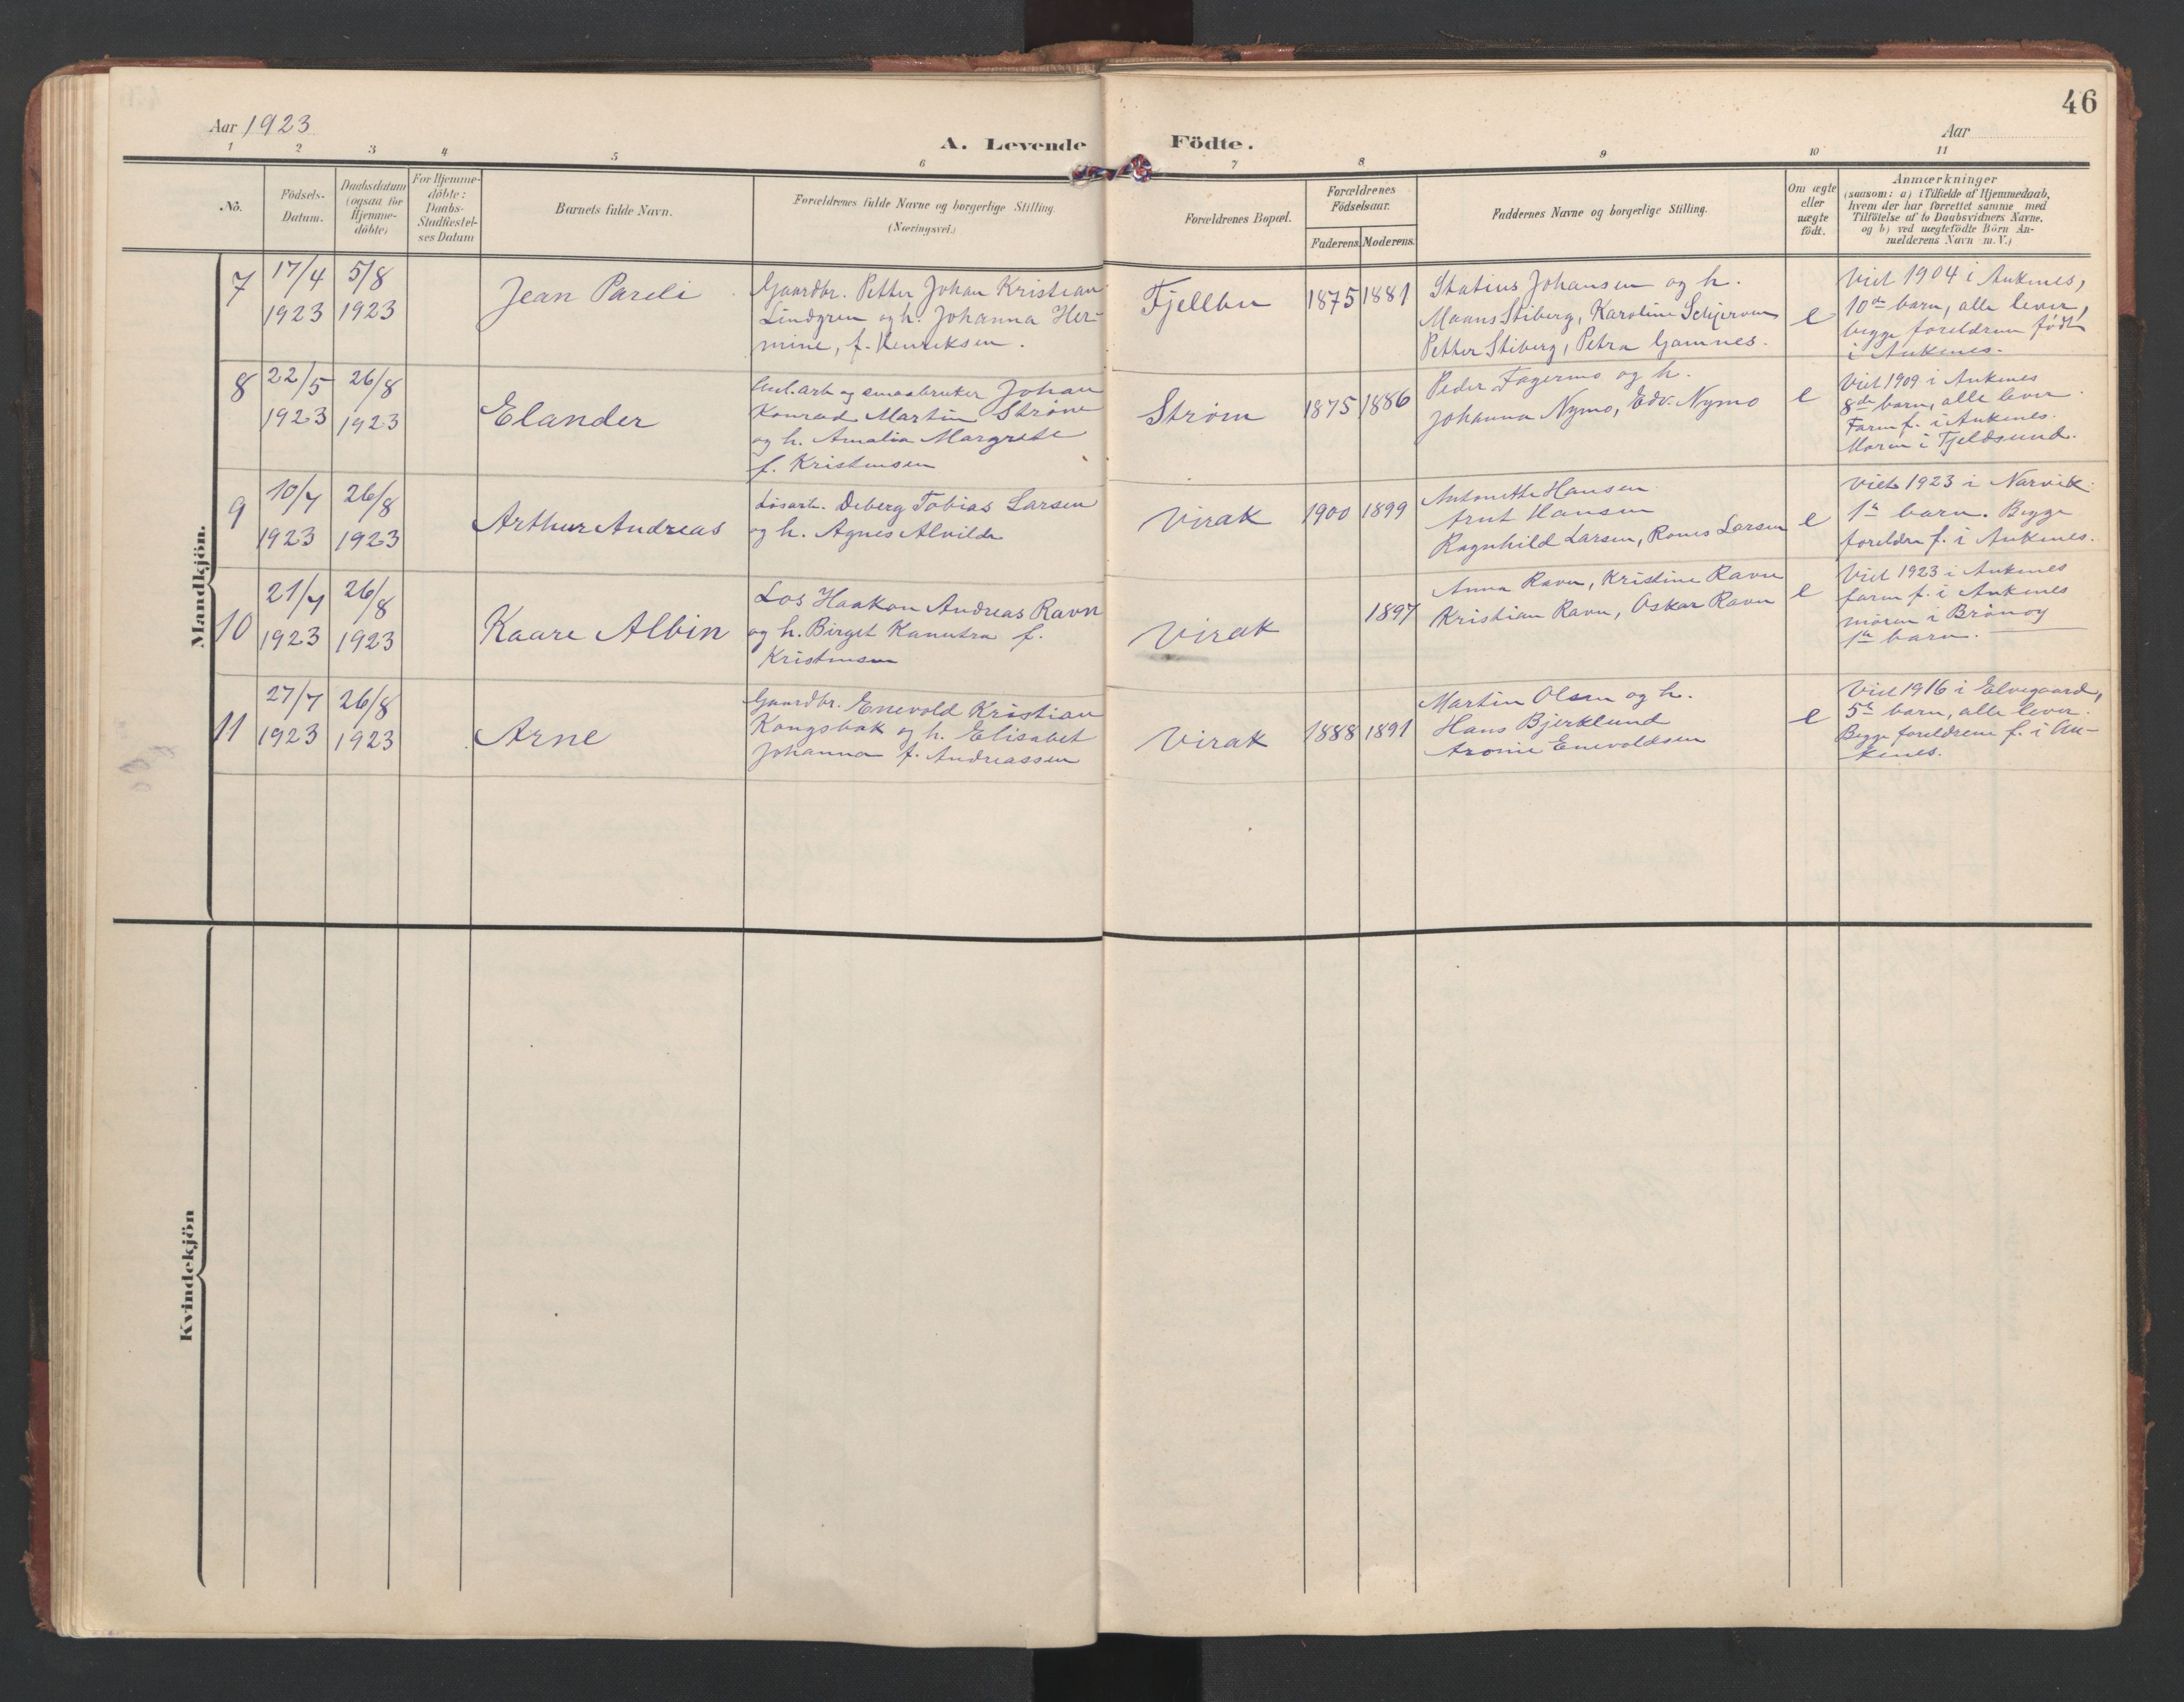 46
Aar 1923
A. Levende Födte.
Aar
1 2 3 4 5 6 7 8 9 10 11
No.
Födsels-
Datum.
Daabsdatum
(ogsaa for
Hjemme-
döbte)
For Hjemme-
döbte:
Daabs-
Stadfæstel-
ses Datum
Barnets fulde Navn.
Forældrenes fulde Navne og borgerlige Stilling.
(Næringsvei.)
Forældrenes Bopæl.
Forældrenes
Födselsaar.
Faderens. Moderens.
Faddernes Navne og borgerlige Stilling.
Om ægte
eller
uægte
födt.
Anmærkninger
(saasom: a) i Tilfælde af Hjemmedaab,
hvem der har forrettet samme med
Tilföielse af to Daabsvidners Navne,
og b) ved uægtefödte Börn An-
melderens Navn m. V.)
Mandkjön.
7
17/4
1923
5/8
1923
Jean Pareli
Gaardbr. Petter Johan Kristian
Lindgren og h. Johanna Her-
mine, f. Henriksen.
Fjellbu
1875 1881
Statius Johansen og h.
Maans Stiberg, Karoline Schjerven
Petter Stiberg, Petra Gamnes.
e
Viet 1904 i Ankenes,
10de barn, alle lever,
begge foreldren född
i Ankenes.
8
22/5
1923
26/8
1923
Elander
arb og smaabruker Johan
Konrad Martin Strøm
og h. Amalia Margrete
f. Kristensen
Strøm
1875 1886
Peder Fagermo og h.
Johanna Nymo, Edv. Nymo
e
Viet 1909 i Ankenes
8de barn, alle lever.
Faren f. i Ankenes.
Moren i Tjeldsund.
9
10/7
1923
26/8
1923
Arthur Andreas
Løsarb. Deberg Tobias Larsen
og h. Agnes Alvilda
Virak
1900 1899
Antonette Hansen
Arnt Hansen
Ragnhild Larsen, Larsen
e
Viet 1923 i Narvik.
1te barn. Begge
foreldre f. i Ankenes.
10
21/7
1923
26/8
1923
Kaare Albin
Los Haakon Andreas Ravn
og h. Birget Kanutra f.
Kristensen
Virak
1897
Anna Ravn, Kristine Ravn
Kristian Ravn, Oskar Ravn
e
Viet 1923 i Ankenes
faren f. i Ankenes
moren i Brönoy
1te barn.
11
27/7
1923
26/8
1923
Arne
Gaardbr. Enevold Kristian
Kongsbak og h. Elisabet
Johanna f. Andreassen
Virak
1888 1891
Martin Olsen og h.
Hans Bjerklund
Aronie Enevoldsen
e
Viet 1916 i Elvegaard,
5te barn, alle lever.
Begge foreldrene f. i An-
kenes.
Kvindekjön